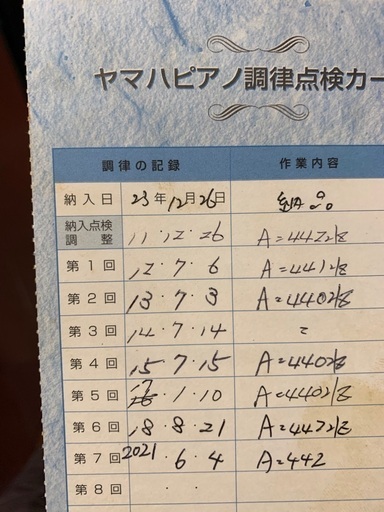 ヤマハピアノ調律点検カー
調律の記録 作業内容
納入日 23年12月26日 納品
納入点検調整 11・12・26 A=442Hz
第1回 12・7・6 A=441Hz
第2回 13・7・3 A=440Hz
第3回 14・7・14 〃
第4回 15・7・15 A=440Hz
第5回 17・1・10 A=440Hz
第6回 18・8・21 A=442Hz
第7回 2021・6・4 A=442
第8回 ・ ・